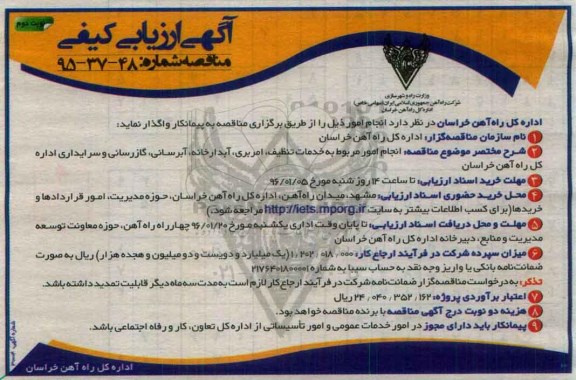 نوبت دوم
آگهی ارزیابی کیفی
مناقصه شماره: ۴۸-۳۷-۹۵
وزارت راه و شهرسازی
شرکت راه آهن جمهوری اسلامی ایران (سهامی خاص)
اداره کل راه آهن خراسان
اداره کل راه آهن خراسان در نظر دارد انجام امور ذیل را از طریق برگزاری مناقصه به پیمانکار واگذار نماید:
۱ نام سازمان مناقصه‌گزار: اداره کل راه آهن خراسان
۲ شرح مختصر موضوع مناقصه: انجام امور مربوط به خدمات تنظیف، امربری، آبدارخانه، آبرسانی، گازرسانی و سرایداری اداره
کل راه آهن خراسان
۳ مهلت خرید اسناد ارزیابی: تا ساعت ۱۴ روز شنبه مورخ ۹۶/۰۱/۰۵
۴ محل خرید حضوری اسناد ارزیابی: مشهد، میدان راه‌آهن، اداره کل راه آهن خراسان، حوزه مدیریت، امور قراردادها و
خریدها (برای کسب اطلاعات بیشتر به سایت http://iets.mporg.ir مراجعه شود.)
۵ مهلت و محل دریافت اسناد ارزیابی: تا پایان وقت اداری یکشنبه مورخ ۹۶/۰۱/۲۰ چهارراه راه آهن، حوزه معاونت توسعه
مدیریت و منابع، دبیرخانه اداره کل راه آهن خراسان
۶ میزان سپرده شرکت در فرآیند ارجاع کار: ۱،۲۰۲،۰۱۸،۰۰۰ (یک میلیارد و دویست و دو میلیون و هجده هزار) ریال به صورت
ضمانت‌نامه بانکی یا واریز وجه نقد به حساب سیبا به شماره ۲۱۷۶۴۰۱۸۰۰۰۰۱
تذکر: به درخواست مناقصه‌گزار ضمانت‌نامه شرکت در فرآیند ارجاع کار لازم است به مدت سه ماه دیگر قابلیت تمدید داشته باشد.
۷ اعتبار برآوردی پروژه: ۲۴،۰۴۰،۳۵۲،۱۶۲ ریال
۸ هزینه دو نوبت درج آگهی مناقصه با برنده مناقصه خواهد بود.
۹ پیمانکار باید دارای مجوز در امور خدمات عمومی و امور تأسیساتی از اداره کل تعاون، کار و رفاه اجتماعی باشد.
اداره کل راه آهن خراسان